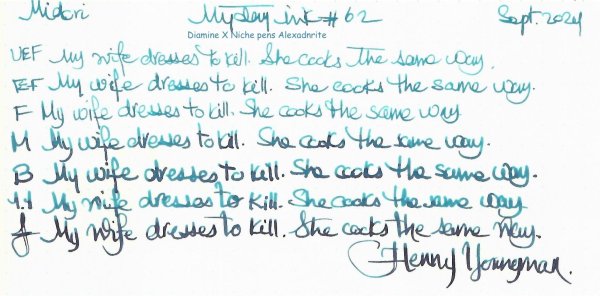 Midori Mystery ink #62 Sept. 2024
Diamine X Niche pens Alexadnrite
UEF My wife dresses to kill. She cooks The same way.
EF My wife dresses to kill. She cooks the same way.
F My wife dresses to kill. She cooks the same way
M My wife dresses to kill. She cooks the same way.
B My wife dresses to kill. She cooks the same way.
1.1 My wife dresses to kill. She cooks the same way
My wife dresses to kill. She cooks the same way.
Henny Youngman.